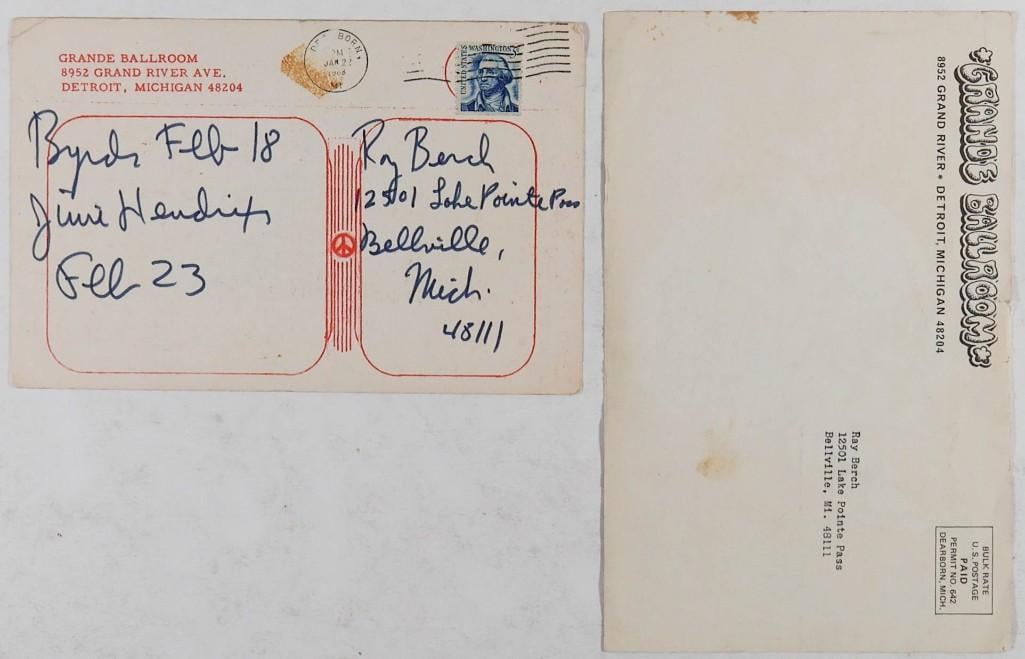 GRANDE BALLROOM
8952 GRAND RIVER AVE.
DETROIT, MICHIGAN 48204
DEARBORN,
PM
JAN 22
1968
UNITED STATES
WASHINGTON 5c
Byrds Feb 18
Jimi Hendrix
Feb 23
Ray Berch
12501 Lake Pointe Pass
Bellville,
Mich.
48111
GRANDE BALLROOM
8952 GRAND RIVER • DETROIT, MICHIGAN 48204
BULK RATE
U.S. POSTAGE
PAID
PERMIT NO. 642
DEARBORN, MICH.
Ray Berch
12501 Lake Pointe Pass
Bellville, Mi. 48111